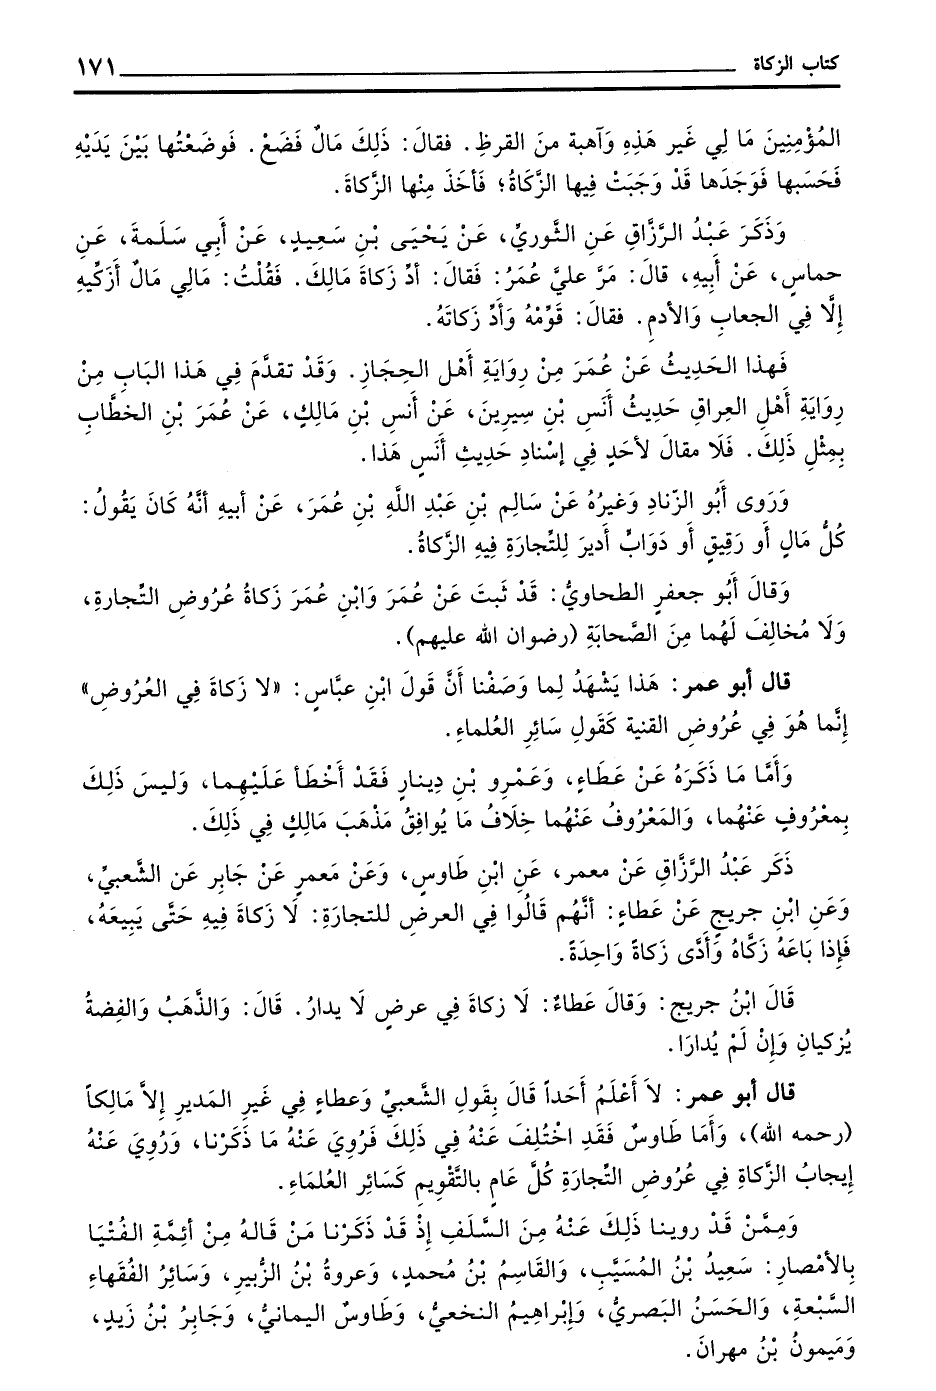 كتاب الزكاة ١٧١
المُؤْمِنِينَ مَا لِي غَير هَذِهِ وَآهبة منَ القرظِ. فقالَ: ذَلِكَ مَالٌ فَضَعْ. فَوضَعْتُها بَيْنَ يَدَيْهِ
فَحَسَبها فَوَجَدَها قَدْ وَجَبَتْ فِيها الزَّكَاةُ؛ فَأخَذَ مِنْها الزَّكاةَ.
وَذَكَرَ عَبْدُ الرَّزَّاقِ عَنِ الثَّوريِّ، عَنْ يَحْيَى بْنِ سَعِيدٍ، عَنْ أَبِي سَلَمةَ، عَنِ
حماسٍ، عَنْ أَبِيهِ، قالَ: مَرَّ عليَّ عُمَرُ: فَقالَ: أدِّ زَكاةَ مَالِكَ. فَقُلْتُ: مَالِي مَالٌ أزَكِّيهِ
إلَّا فِي الجعابِ وَالأدمِ. فقالَ: قَوِّمْهُ وَأَدِّ زَكاتَهُ.
فَهذا الحَدِيثُ عَنْ عُمَرَ مِنْ رِوَايَةِ أَهْل الحِجَازِ. وَقَدْ تقدَّمَ فِي هَذا البَابِ مِنْ
رِوَايَةِ أهْلِ العِراقِ حَدِيثُ أَنَسِ بْنِ سِيرِينَ، عَنْ أنَسِ بْنِ مَالِكٍ، عَنْ عُمَرَ بْنِ الخطَّابِ
بِمِثْلِ ذَلِكَ. فَلَا مقالَ لأحَدٍ فِي إسْنادِ حَدِيثِ أَنَسٍ هَذا.
وَرَوى أَبُو الزّنادِ وَغيرُهُ عَنْ سَالِم بْنِ عَبْدِ اللَّهِ بْنِ عُمَرَ، عَنْ أبيهِ أنَّهُ كَانَ يَقُولُ:
كُلُّ مَالٍ أَو رَقِيقٍ أَو دَوَابٍّ أُديرَ لِلتِّجارَةِ فِيهِ الزَّكاةُ.
وَقالَ أَبُو جعفرٍ الطحاويُّ: قَدْ ثَبتَ عَنْ عُمَرَ وَابْنِ عُمَرَ زَكاةُ عُرُوضِ التِّجارةِ،
وَلَا مُخالِفَ لَهُما مِنَ الصَّحابَةِ (رضوان الله عليهم).
قال أبو عمر: هَذا يَشْهَدُ لِما وَصَفْنا أَنَّ قَولَ ابْنِ عبَّاسٍ: «لا زَكاةَ فِي العُرُوضِ»
إنَّما هُوَ فِي عُرُوضِ القنية كَقَولِ سَائِرِ العُلماءِ.
وَأمَّا مَا ذَكَرَهُ عَنْ عَطَاءٍ، وَعَمْرِو بْنِ دِينارٍ فَقَدْ أَخْطَأ عَلَيْهِما، وَليسَ ذَلِكَ
بِمعْرُوفٍ عَنْهُما، وَالمَعْرُوفُ عَنْهُما خِلَافُ مَا يُوافِقُ مَذْهَبَ مَالِكٍ فِي ذَلِكَ.
ذَكَر عَبْدُ الرَّزَّاقِ عَنْ معمر، عَنِ ابْنِ طَاوسٍ، وَعَنْ مَعمرٍ عَنْ جَابِر عَن الشَّعبيِّ،
وَعَنِ ابْنِ جريجٍ عَنْ عَطاءٍ: أنَّهُم قَالُوا فِي العرضِ للتجارَةِ: لَا زَكاةَ فِيهِ حَتَّى يَبِيعَهُ،
فَإذا بَاعَهُ زَكَّاهُ وَأَدَّى زَكاةً وَاحِدَةً.
قَالَ ابْنُ جريج: وَقالَ عَطاءٌ: لَا زكاةَ فِي عرضٍ لَا يدارُ. قَالَ: وَالذَّهَبُ وَالفِضةُ
يُزكيانِ وَإنْ لَمْ يُدارَا.
قال أبو عمر: لاَ أَعْلَمُ أَحَداً قَالَ بِقَولِ الشَّعبيِّ وَعطاءٍ فِي غَيرِ المَديرِ إلاَّ مَالِكاً
(رحمه الله)، وَأمَا طَاوسٌ فَقَدِ اخْتُلِفَ عَنْهُ فِي ذَلِكَ فَرُوِيَ عَنْهُ مَا ذَكَرْنا، وَرُوِيَ عَنْهُ
إيجابُ الزَّكاةِ فِي عُرُوضِ التِّجارَةِ كُلَّ عَامٍ بالتَّقْوِيمِ كَسَائِرِ العُلَمَاءِ.
وَمِمَّنْ قَدْ روينا ذَلِكَ عَنْهُ مِنَ السَّلَفِ إذْ قَدْ ذَكَرْنا مَنْ قَالهُ مِنْ أئِمَّةِ الفُتْيَا
بِالأمْصارِ: سَعِيدُ بْنُ المُسَيَّبِ، وَالقَاسِمُ بْنُ مُحمدٍ، وَعروةُ بْنُ الزُّبيرِ، وَسَائِرُ الفُقَهاءِ
السَّبْعةِ، وَالحَسَنُ البَصريُّ، وَإبْراهِيمُ النخعيُّ، وَطَاوسٌ اليمانيُّ، وَجَابِرُ بْنُ زَيدٍ،
وَمَيمونُ بْنُ مهرانَ.